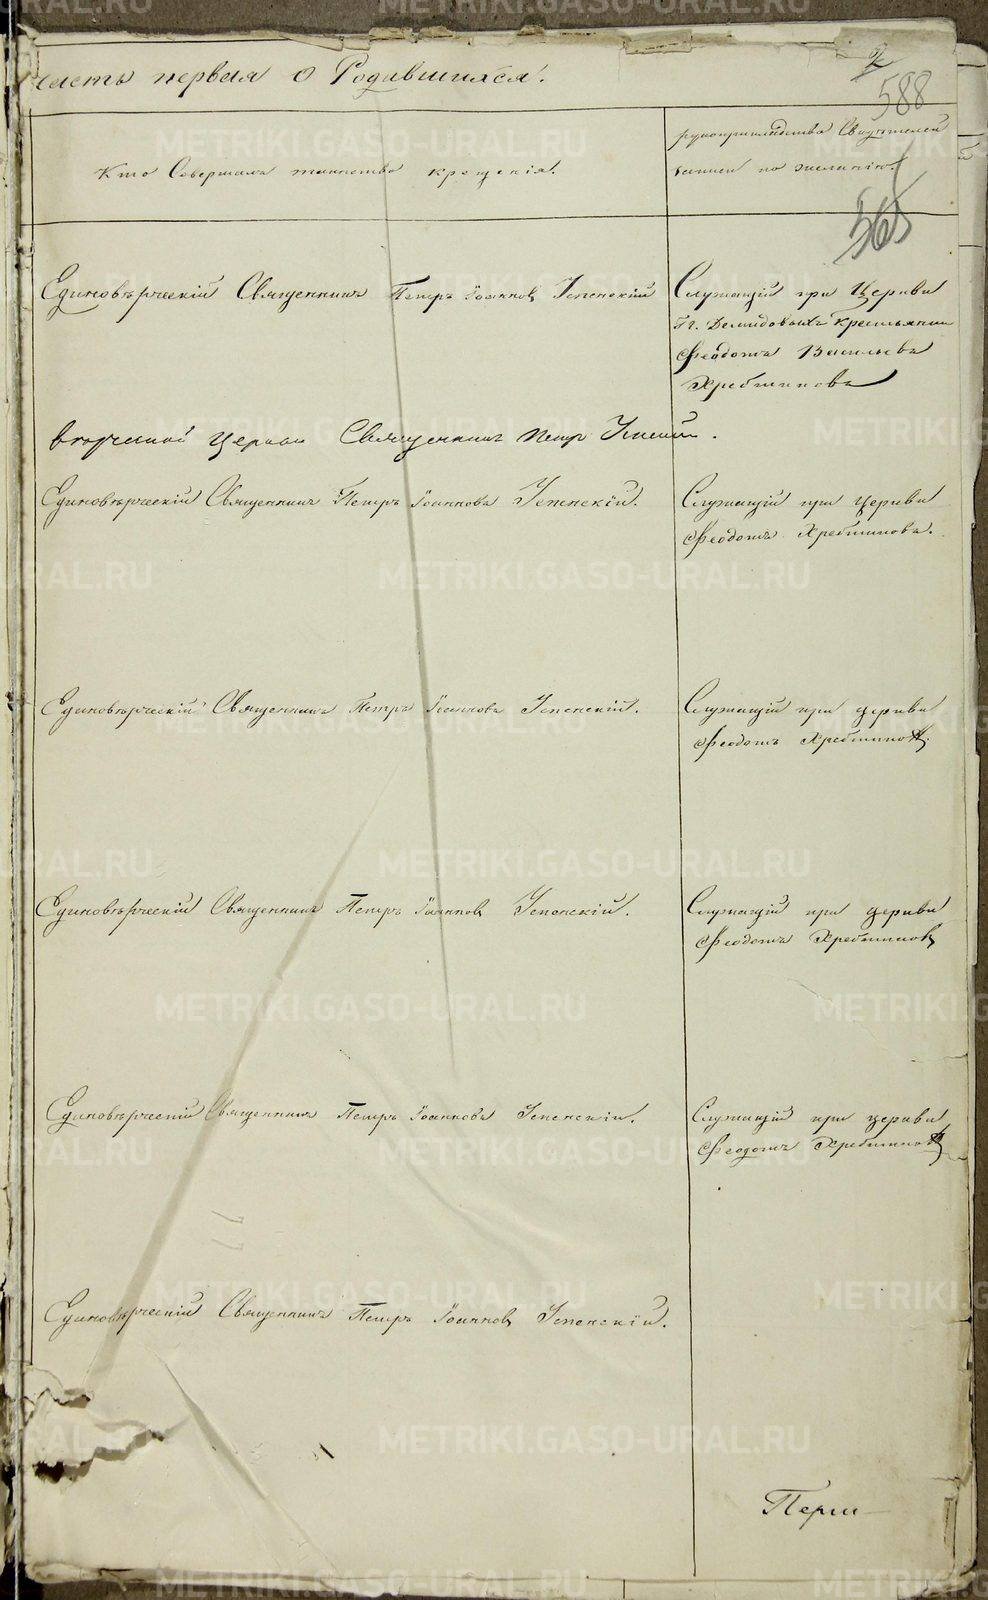 METRIKI.GASO-URAL.RU
часть первая о Родившихся.
588
Кто Совершалъ таинство крещенія.
рукоприкладство Свидетелей
записи по желанію.
565
Единоверческій Священникъ Петръ Іоанновъ Успенскій
Служащій при Церкви
Гг. Демидовыхъ крестьянин
Феодотъ Васильевъ
Хребтиковъ
церкви Священникъ Петр Успенский.
Единоверческій Священникъ Петръ Іоанновъ Успенскій.
Служащій при церкви
Феодотъ Хребтиковъ.
Единоверческій Священникъ Петръ Іоанновъ Успенскій.
Служащій при церкви
Феодотъ Хребтиковъ.
Единоверческій Священникъ Петръ Іоанновъ Успенскій.
Служащій при церкви
Феодотъ Хребтиковъ
Единоверческій Священникъ Петръ Іоанновъ Успенскій.
Служащій при церкви
Феодотъ Хребтиковъ
Единоверческій Священникъ Петръ Іоанновъ Успенскій.